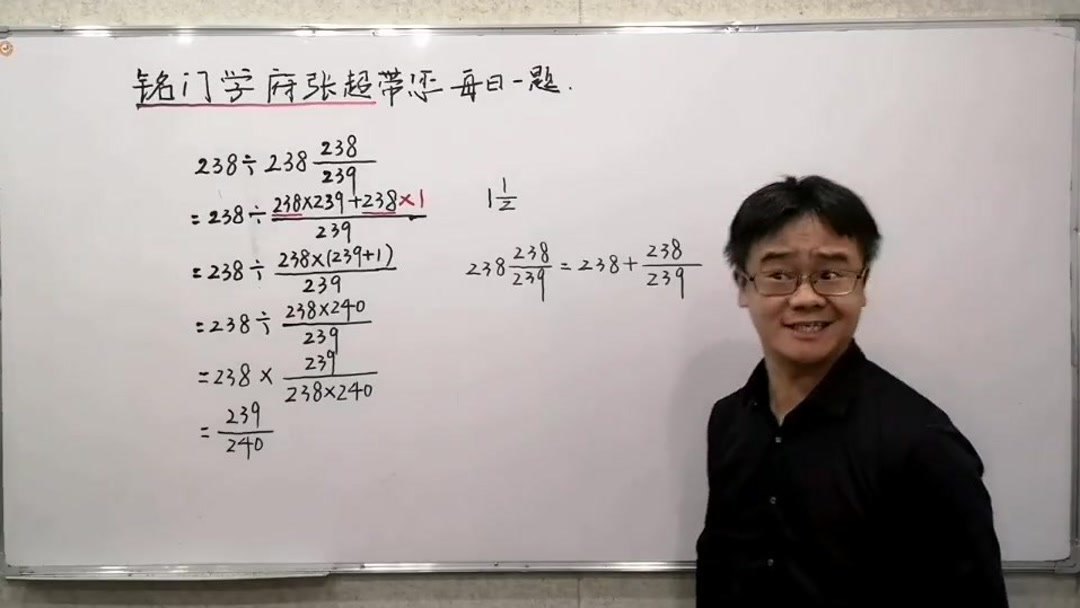 铭门学府张超带您每日一题.
238÷238 238/239
=238÷ 238×239+238×1/239
=238÷ 238×(239+1)/239
=238÷ 238×240/239
=238× 239/238×240
= 239/240
1 1/2
238 238/239 =238+ 238/239